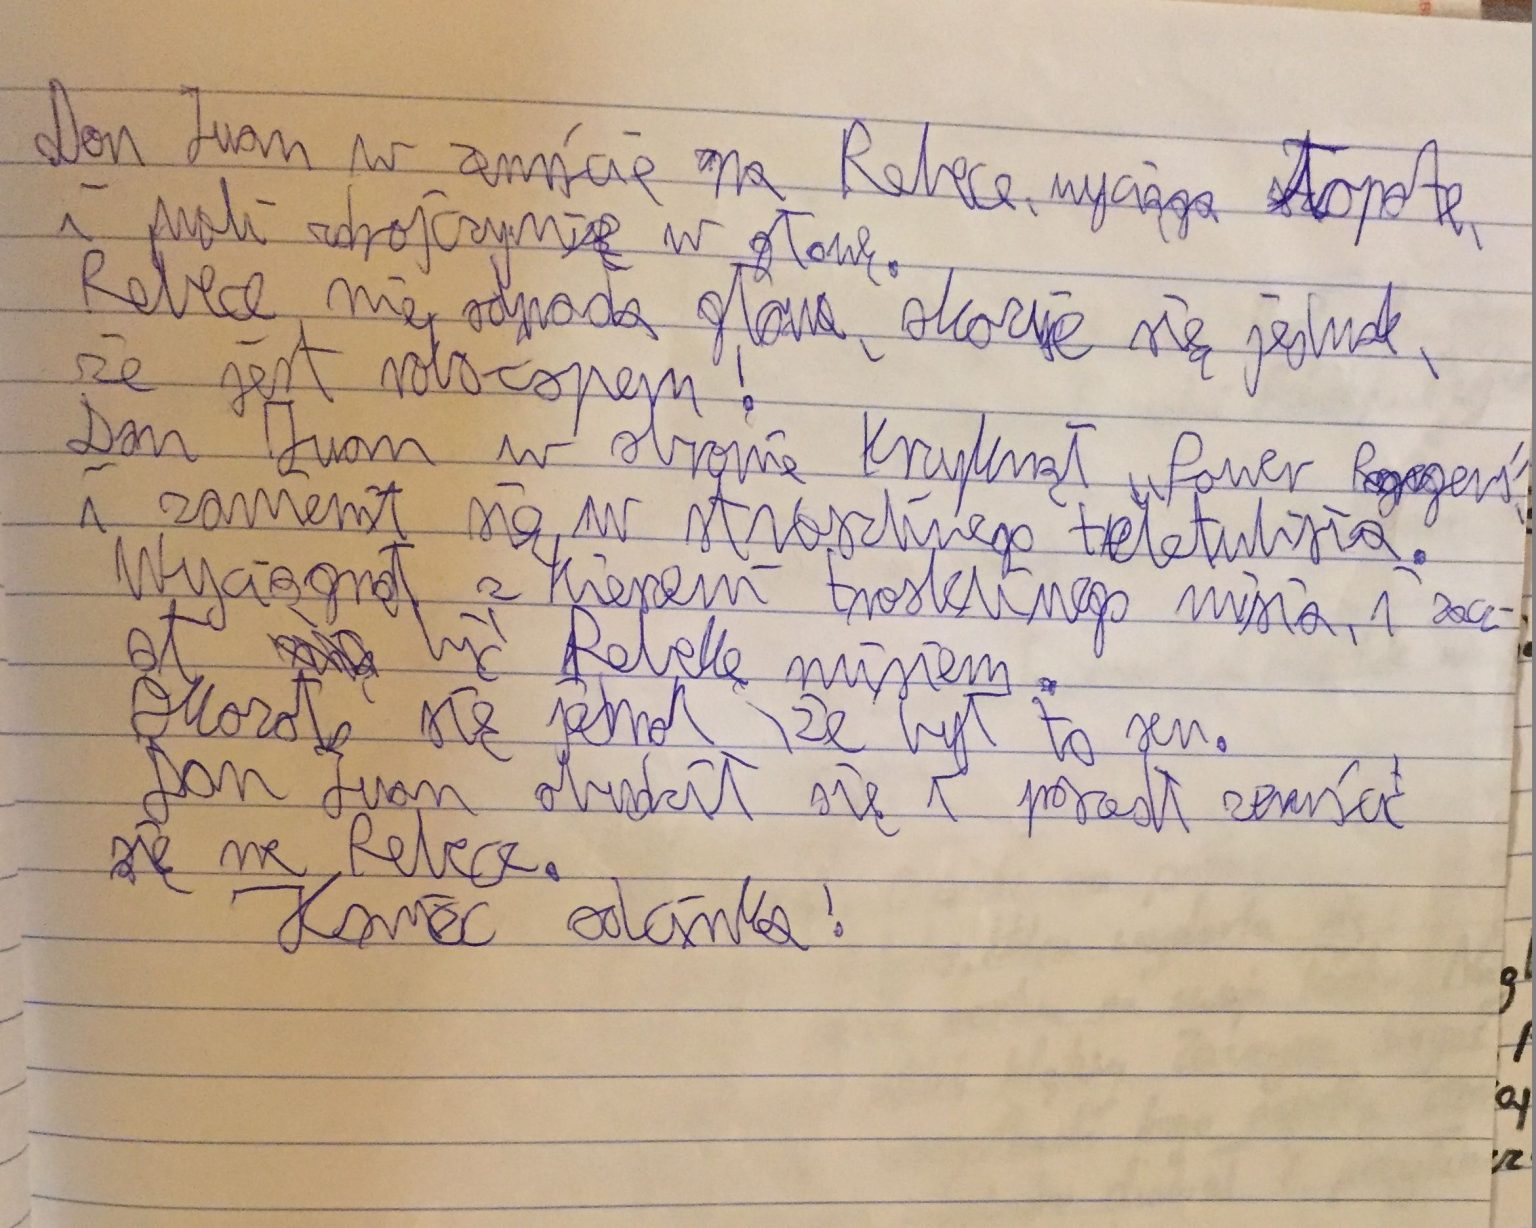 Don Juan w zemście na Rebece, wyciąga łopatę,
i wali zdrojczynię w głowę.
Rebece nie odpada głowa, okazuje się jednak,
że jest robo-copem!
Don Juan w obronie krzyknął "Power Rangers"
i zamienił się w straszliwego teletubisia.
Wyciągnął z kieszeni troskliwego misia, i zacz-
ął bić Rebekę misiem.
Okazało się jednak, że był to sen.
Don Juan obudził się i poszedł zemścić
się na Rebece.
Koniec odcinka!